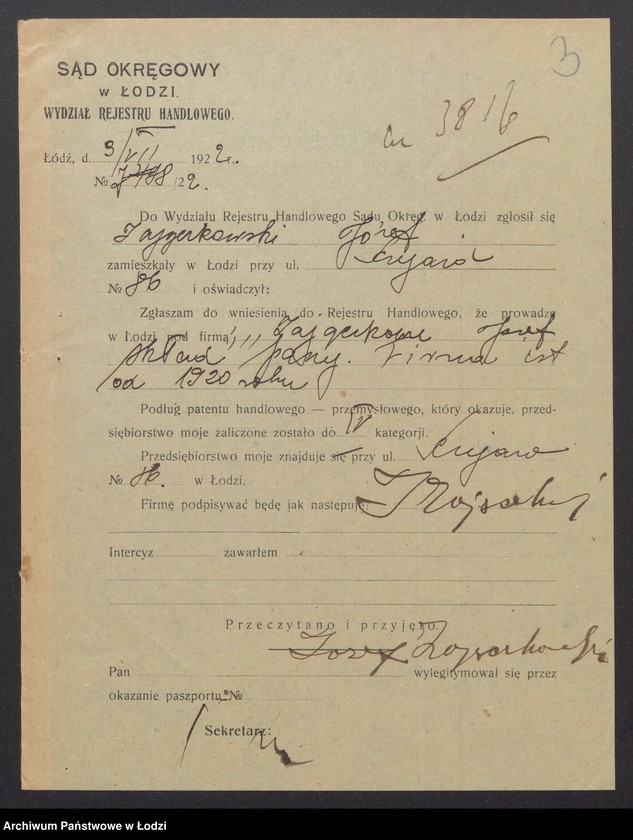 3
SĄD OKRĘGOWY
w ŁODZI.
WYDZIAŁ REJESTRU HANDLOWEGO.
3816
Łódź, d. 3/VII 1922 r.
№ /22.
Do Wydziału Rejestru Handlowego Sądu Okręg. w Łodzi zgłosił się
Józef
zamieszkały w Łodzi przy ul.
№ 86 i oświadczył:
Zgłaszam do wniesienia do Rejestru Handlowego, że prowadzę
w Łodzi pod firmą: Józef
skład Firma ist
od 1920 roku
Podług patentu handlowego — przemysłowego, który okazuje, przed-
siębiorstwo moje zaliczone zostało do IV kategorji.
Przedsiębiorstwo moje znajduje się przy ul.
№ 86. w Łodzi.
Firmę podpisywać będę jak następuje:
Intercyz zawarłem
Przeczytano i przyjęto.
Józef
Pan wylegitymował się przez
okazanie paszportu №
Sekretarz:
Archiwum Państwowe w Łodzi